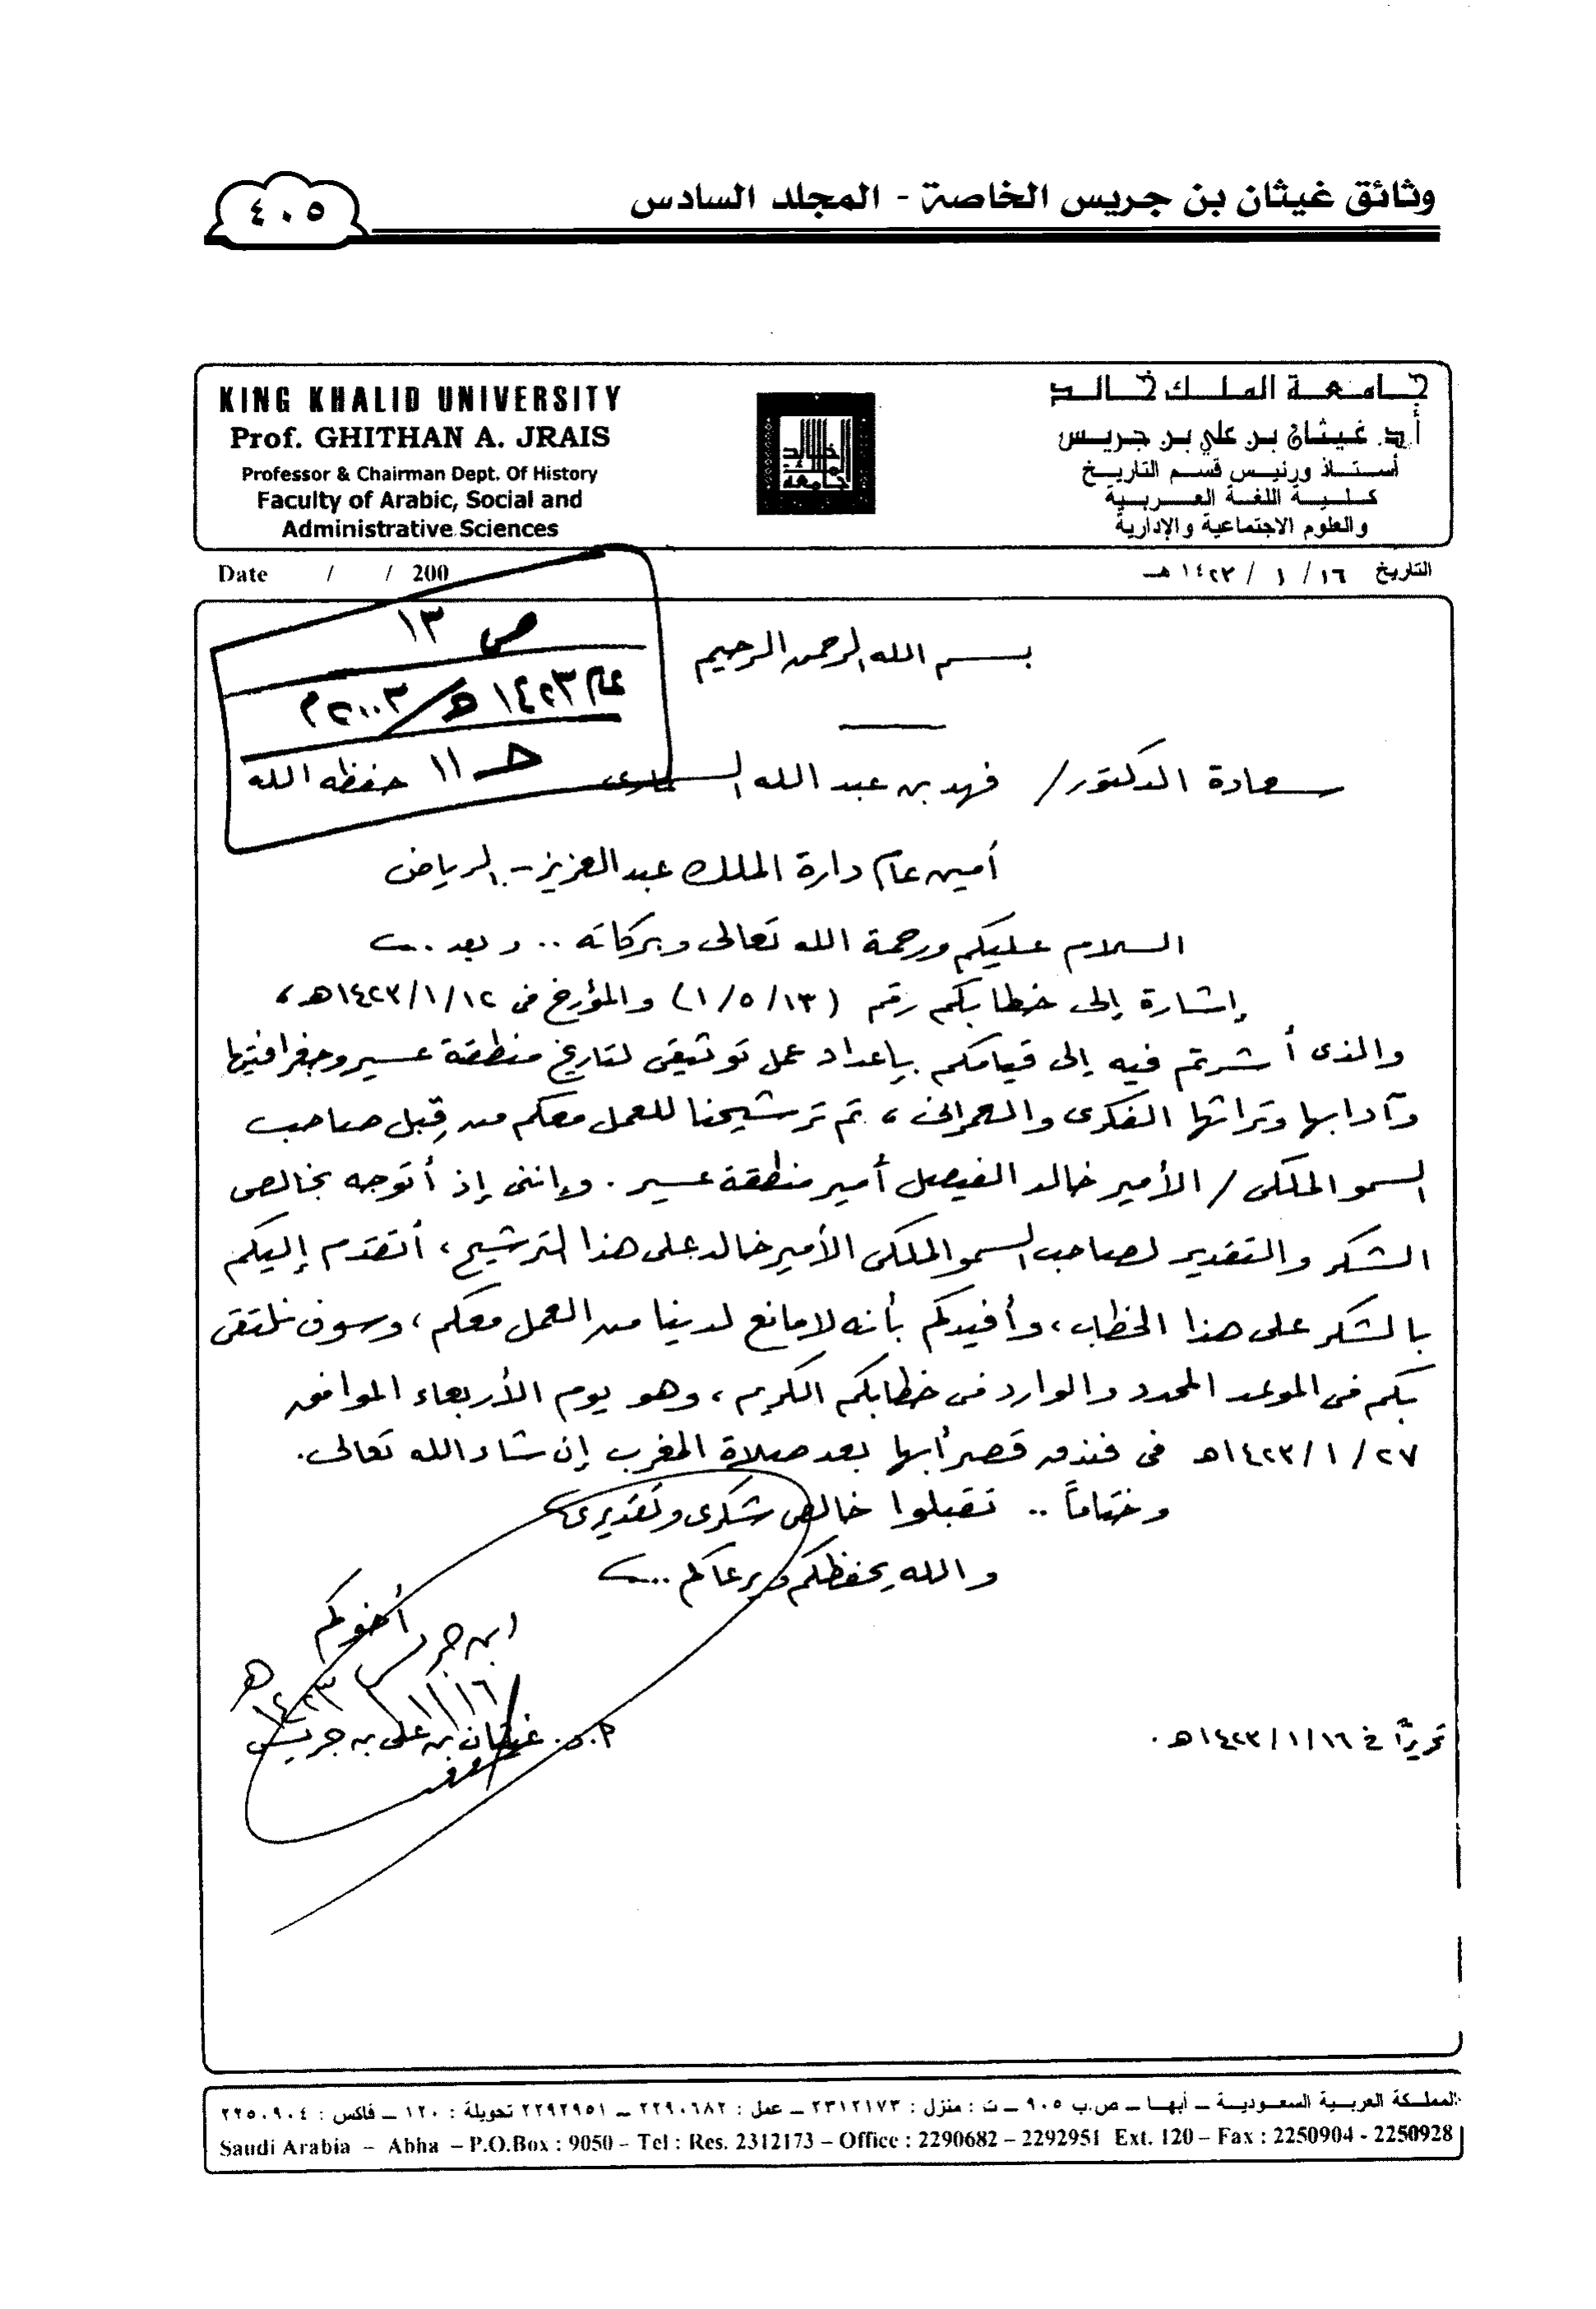 وثائق غيثان بن جريس الخاصة - المجلد السادس
٤٠٥
KING KHALID UNIVERSITY
Prof. GHITHAN A. JRAIS
Professor & Chairman Dept. Of History
Faculty of Arabic, Social and
Administrative Sciences
جامعة الملك خالد
أ.د. غيثان بن علي بن جريس
أستاذ ورئيس قسم التاريخ
كلية اللغة العربية
والعلوم الاجتماعية والإدارية
خالد
الملك
جامعة
Date / / 200
التاريخ ١٦ / ١ / ١٤٢٣ هـ
ص ١٣
عام ١٤٢٣هـ/٢٠٠٣م
حـ ١١
بسم الله الرحمن الرحيم
سعادة الدكتور/ فهد بن عبد الله السماري حفظه الله
أمين عام دارة الملك عبد العزيز - الرياض
السلام عليكم ورحمة الله تعالى وبركاته .. وبعد ..
إشارة إلى خطابكم رقم (١/٥/١٣) والمؤرخ في ١٤٢٣/١/١٢هـ،
والذي أشرتم فيه إلى قيامكم بإعداد عمل توثيقي لتاريخ منطقة عسير وجغرافيتها
وآدابها وتراثها الفكري والعمراني، تم ترشيحنا للعمل معكم من قِبل صاحب
السمو الملكي/ الأمير خالد الفيصل أمير منطقة عسير. وإنني إذ أتوجه بخالص
الشكر والتقدير لصاحب السمو الملكي الأمير خالد على هذا الترشيح، أتقدم إليكم
بالشكر على هذا الخطاب، وأفيدكم بأنه لا مانع لدينا من العمل معكم، وسوف نلتقي
بكم في الموعد المحدد والوارد في خطابكم الكريم، وهو يوم الأربعاء الموافق
٢٧/١/١٤٢٣هـ في فندق قصر أبها بعد صلاة المغرب إن شاء الله تعالى.
وختاماً .. تقبلوا خالص شكري وتقديري
والله يحفظكم ويرعاكم ..
أخوكم
ابن جريس
١٦/١/١٤٢٣هـ
أ.د. غيثان بن علي بن جريس
تحريراً في ١٤٢٣/١/١٦هـ.
المملكة العربية السعودية - أبها - ص.ب ٩٠٥ - ت : منزل : ٢٣١٢١٧٣ - عمل : ٢٢٩٠٦٨٢ - ٢٢٩٢٩٥١ تحويلة : ١٢٠ - فاكس : ٢٢٥٠٩٠٤
Saudi Arabia - Abha - P.O.Box : 9050 - Tel : Res. 2312173 - Office : 2290682 - 2292951 Ext. 120 - Fax : 2250904 - 2250928